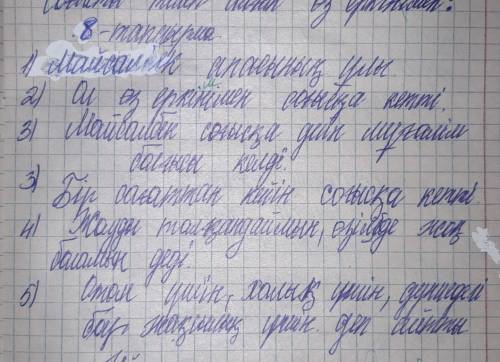 өз еркімен.
8-тапсырма
1) Майсалбек апаның ұлы.
2) Ол өз еркімен соғысқа кетті.
3) Майсалбек соғысқа дейін мұғалім
болғысы келді.
3) Бір сағаттан кейін соғысқа кетті.
4) Жауды талқандаймын, өзімде жоқ
боламын деді.
5) Отан үшін, халық үшін, дүниедегі
бар жақсылық үшін деп айтты